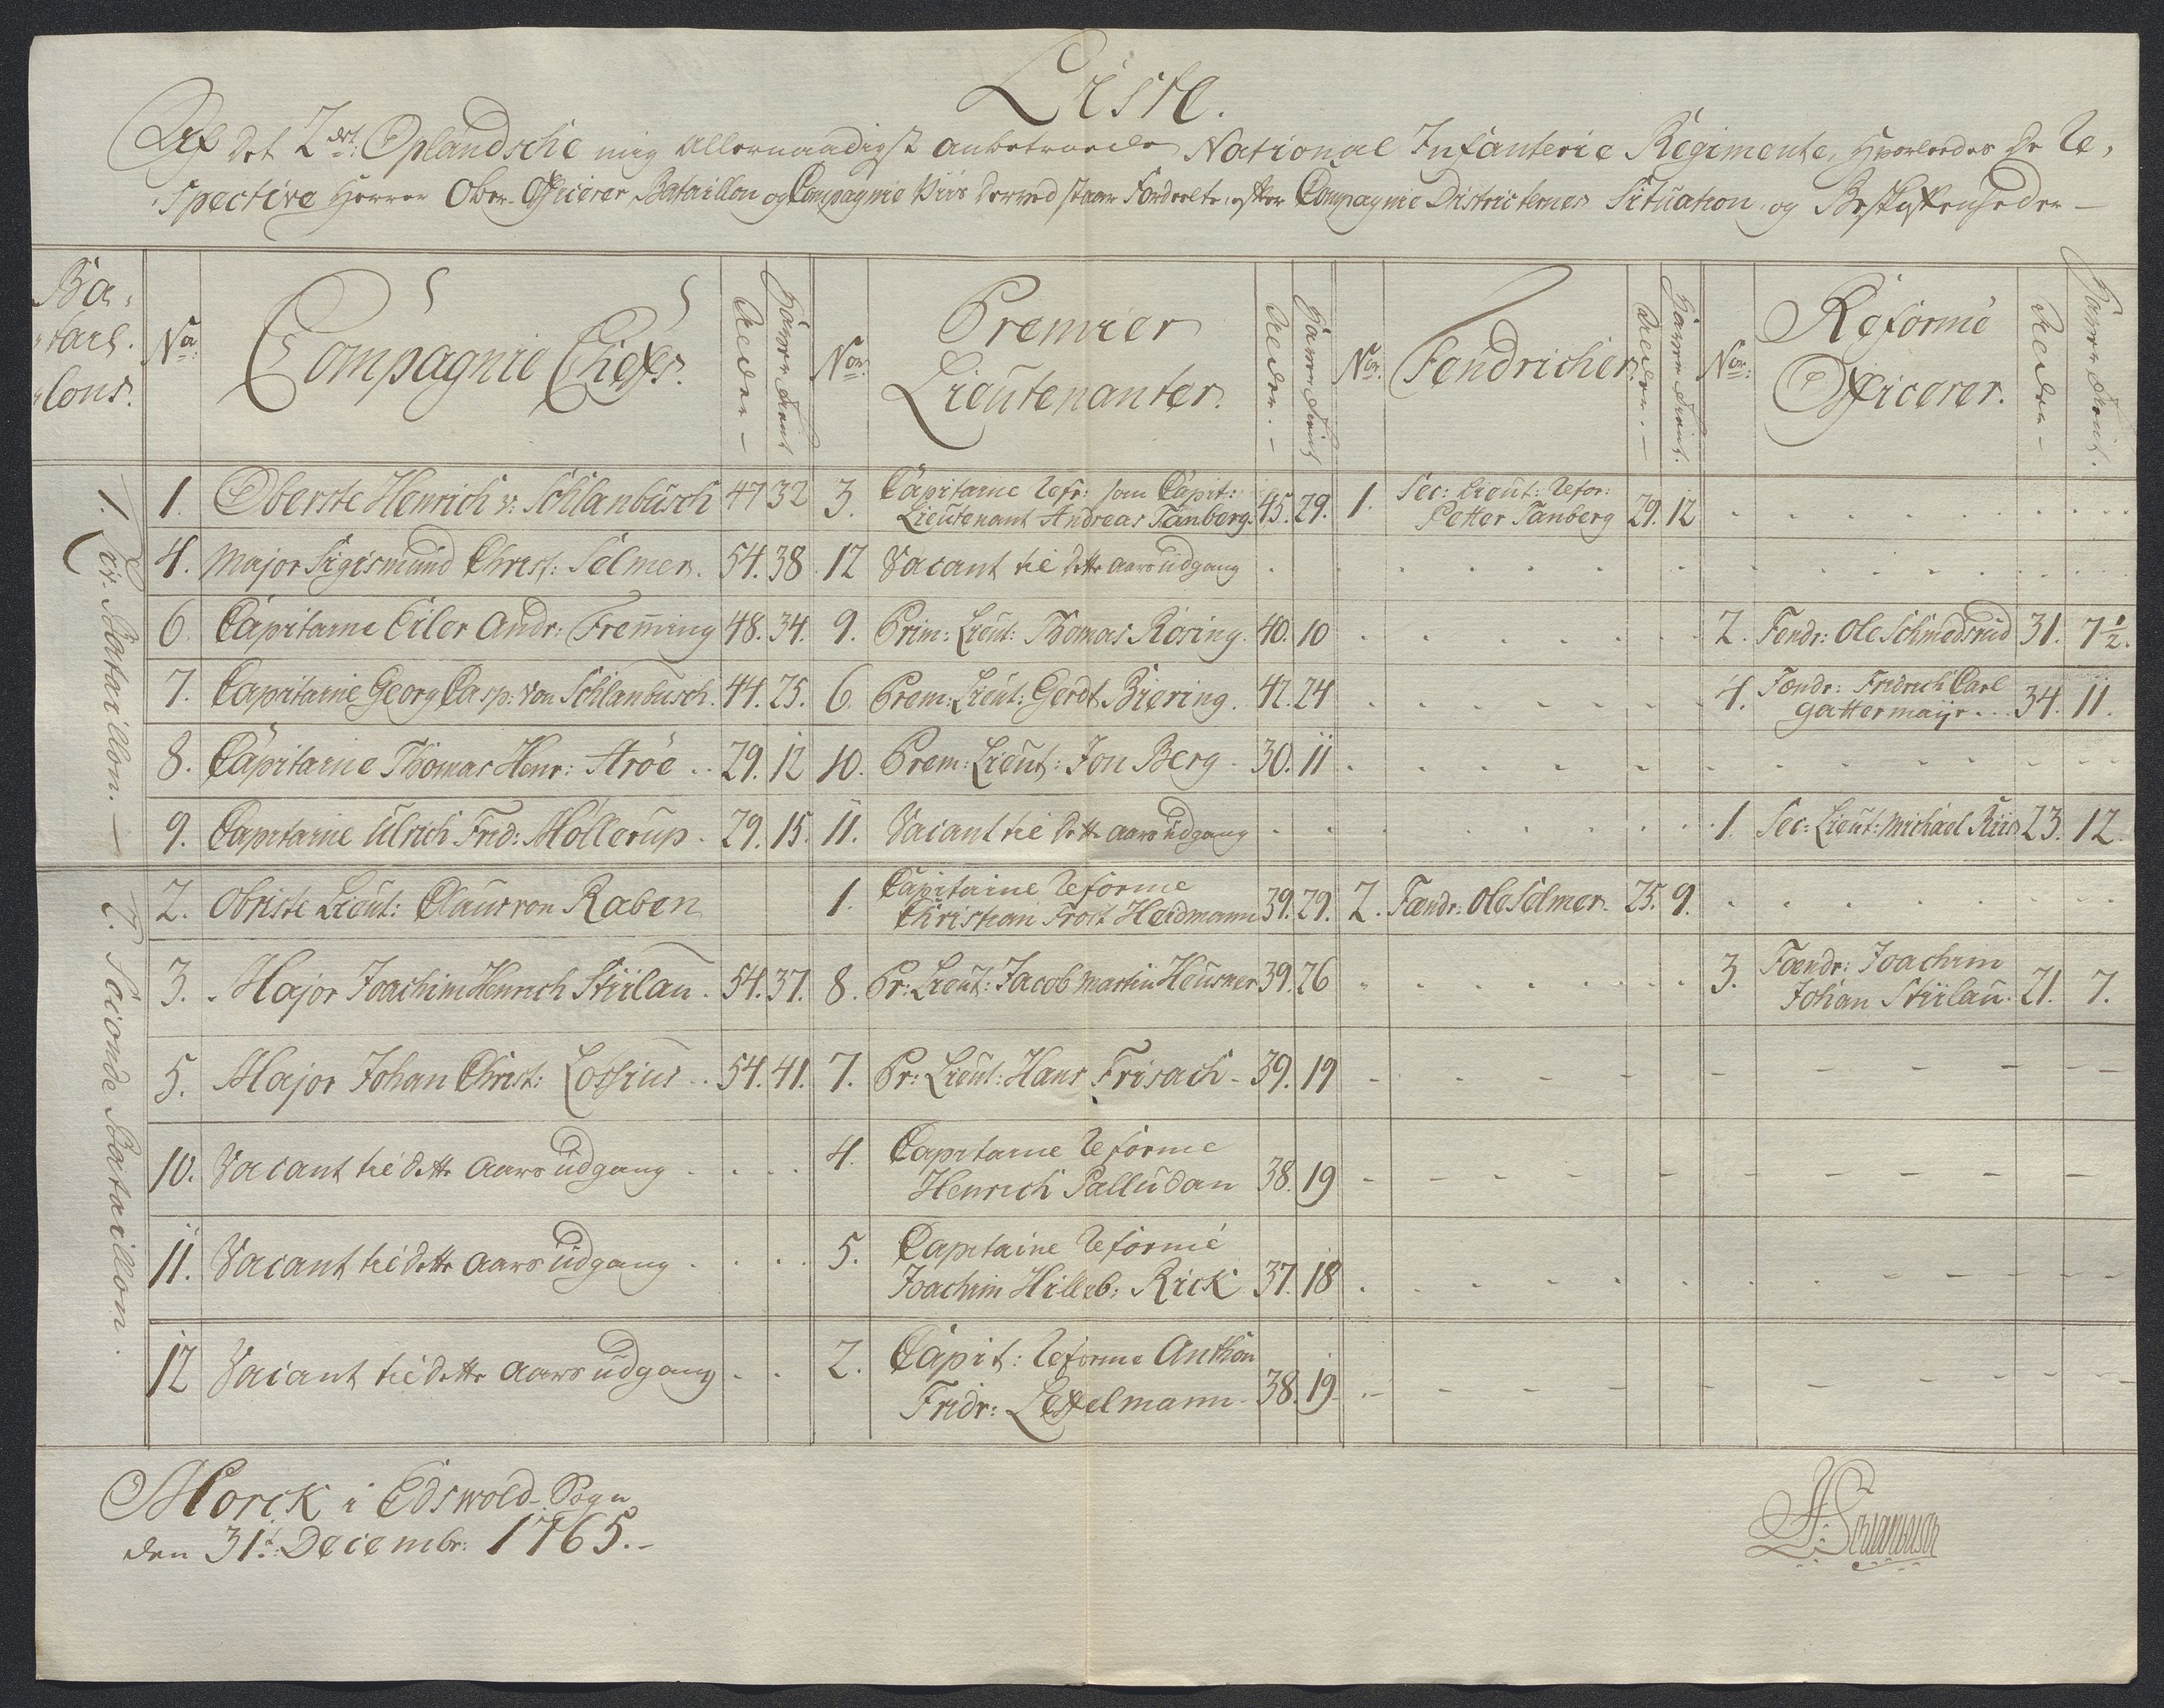 Liste.
Af det 2det: Oplandsche mig Allernaadigst anbetroede National Infanterie Regimente, Hvorledes de Re,
spective Herrer Ober-Officerer Bataillon og Compagnie Viis derved staar Fordeelte, efter Compagnie Districternes Situation og Beskaffenheder —
Ba,
tail.
lons.
No: Compagnie Chefs. Alder — Haver tient
Nor: Premier Lieutenanter. Alder. — Haver tient
Nor: Fendricher. Alder. — Haver tient.
Nor: Reformé Officerer. Alder — Haver tient.
1. Bataillon. —
1. Oberste Henrich v: Schlanbusch 47 32 3. Capitaine Refr: som Capit: Lieutenant Andreas Tanberg. 45. 29. 1. Sec: Lieut: Refor: Petter Tanberg 29. 12
4. Major Sigismund Christ: Selmer. 54. 38 12 Vacant til dette Aars udgang
6. Capitaine Eiler Andr: Fremming 48. 34. 9. Prim: Lieut: Thomas Rosing. 40. 10 2. Fendr: Ole Schmedsrud 31. 7½.
7. Capitaine Georg Casp: von Schlanbusch. 44. 25. 6. Prem: Lieut: Gerdt Biering. 42. 24 4. Fændr: Fridrich Carl Gattermaijr... 34. 11.
8. Capitaine Thomas Henr: Aröe .. 29. 12 10. Prem: Lieut: Jon Berg. 30. 11
9. Capitaine Ulrich Frid: Mollerup. 29. 15. 11. Vacant til dette Aars udgang 1. Sec: Lieut: Michael Riis 23. 12.
2. Seconde Bataillon.
2. Obriste Lieut: Claus von Raben 1. Capitaine Reforme Christian Frost Heidmann 39. 29. 2. Fændr: Ole Selmer. 25. 9.
3. Major Joachim Henrich Stiilau. 54. 37. 8. Pr: Lieut: Jacob Martin Heusner 39. 26 3. Fændr: Joachim Johan Stiilau. 21. 7.
5. Major Johan Christ: Lossius .. 54. 41. 7. Pr: Lieut: Hans Frisach - 39. 19
10. Vacant til dette Aars udgang 4. Capitaine Reforme Henrich Palludan 38. 19
11. Vacant til dette Aars udgang 5. Capitaine Reformé Joachim Hilleb: Rick 37. 18
12 Vacant til dette Aars udgang 2. Capit: Reforme Anthon Fridr: Leffelmann. 38. 19
Morck i Edswold Sogn
den 31te: Decembr: 1765.-
H: Schlanbusch